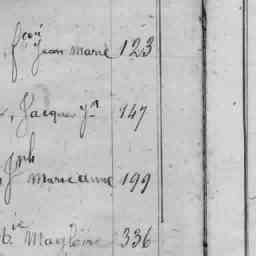 fçois
Jean Marie 123
, Jacques Jn 147
Jph
Marie anne 199
bie Magloire 336